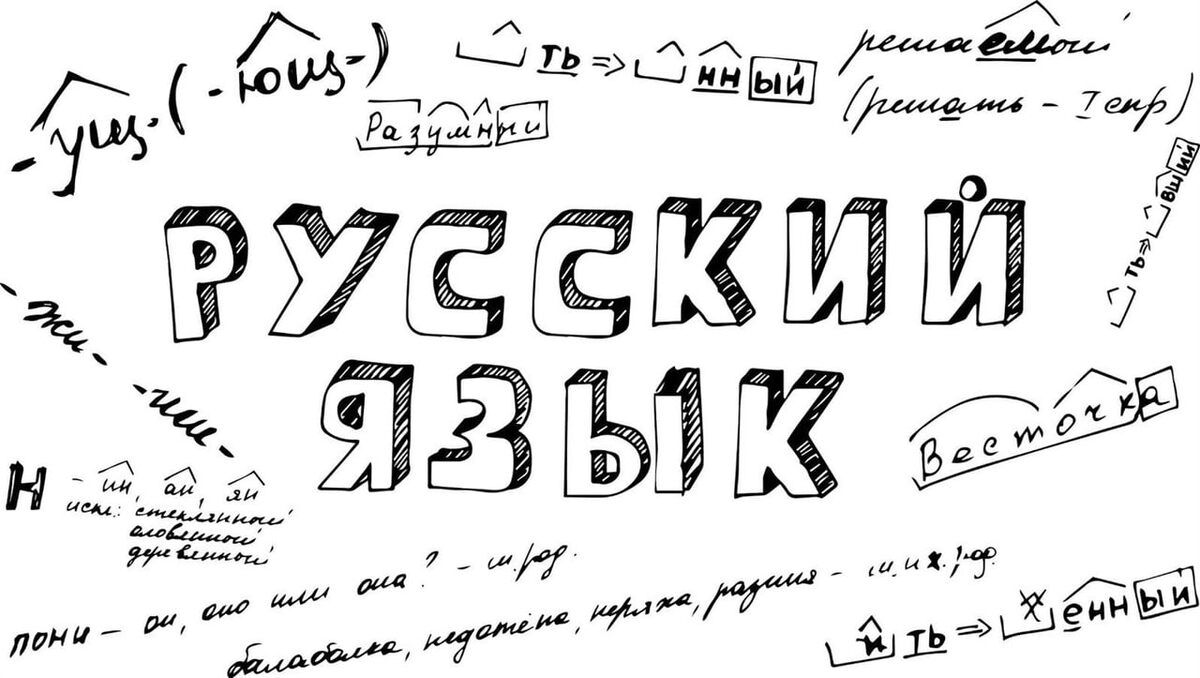 -ущ- (-ющ-)
ть ⇒ нный
решаемый
(решать – I спр)
Разумный
ть ⇒ вший
РУССКИЙ
ЯЗЫК
- жи -
- ши -
Весточка
Н - ин, ан, ян
искл: стеклянный
оловянный
деревянный
пони – он, оно или она? – м. род.
балаболка, недотёпа, неряха, разиня – м. и ж. род.
и ть ⇒ енный